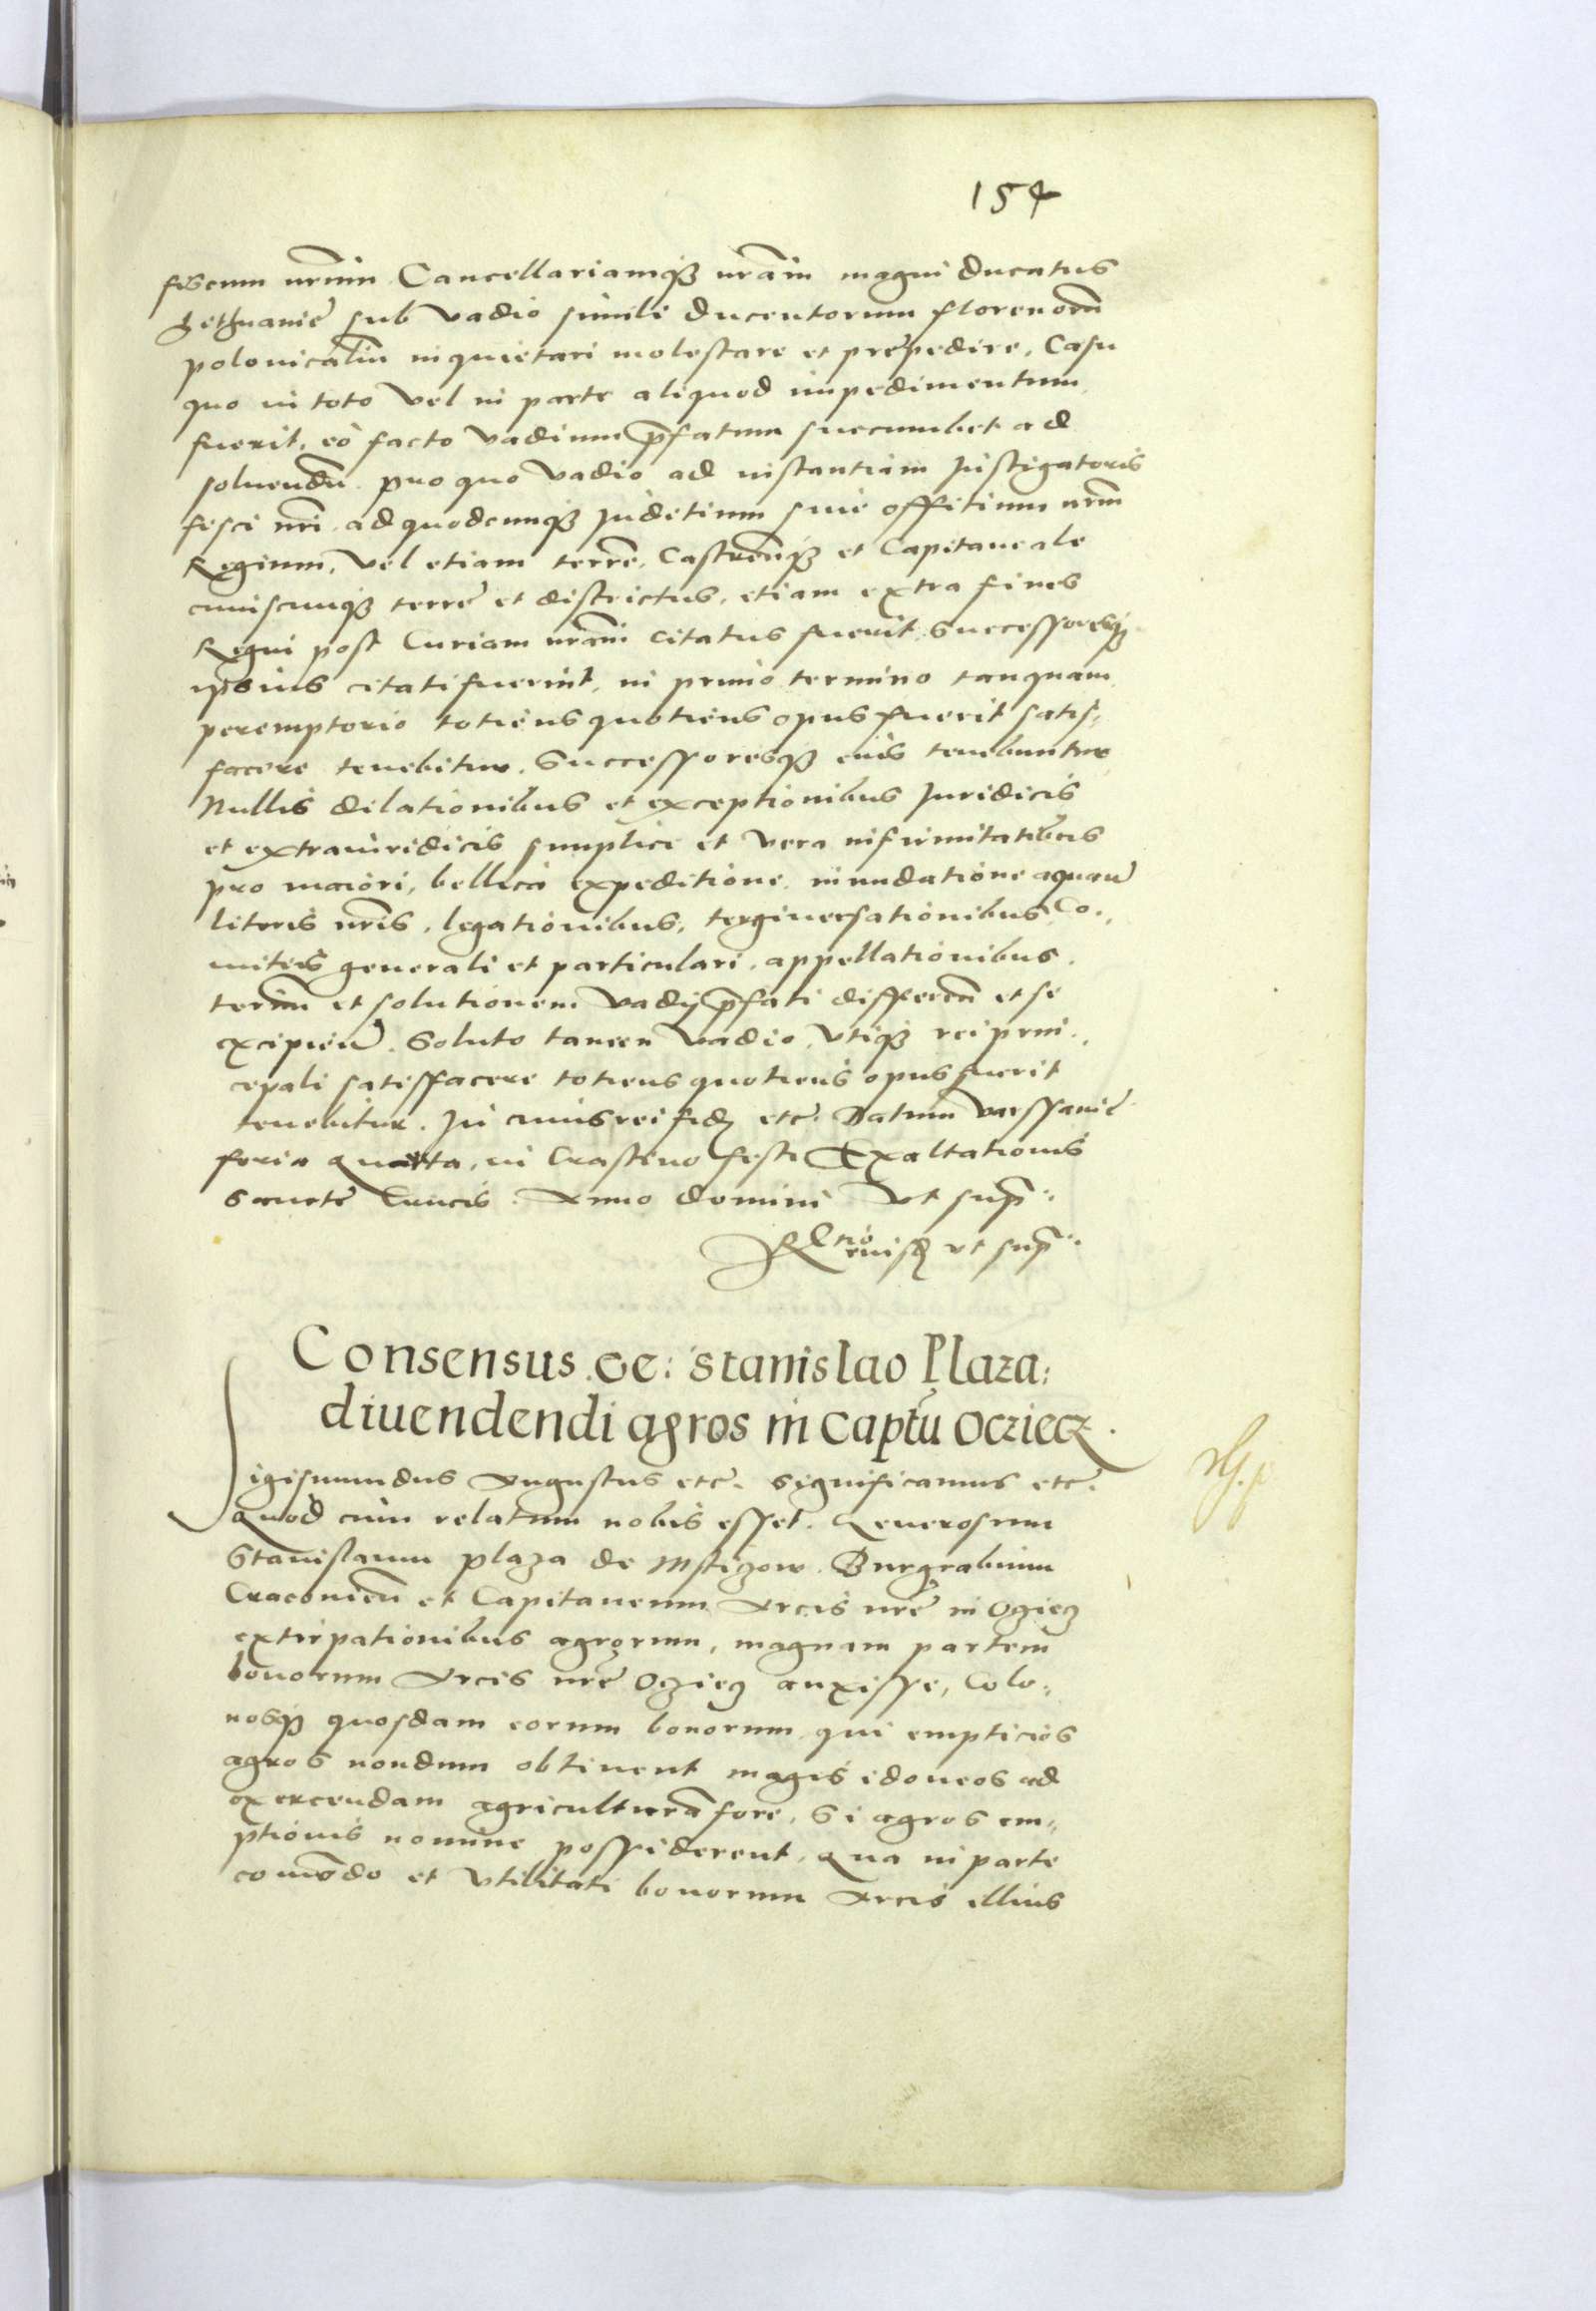 154
fiscum nr̃um Cancellariamqȝ nrãm magni ducatus
Lethuaniẽ sub vadio simili ducentorum florenorũ
polonicaliũ inquietari molestare et prepedire, Casu
quo in toto vel in parte aliquod impedimentum
fuerit, eo facto vadium p̃fatum succumbet ad
soluendũ. pro quo vadio ad instantiam Instigatoris
fisci nr̃i ad quodcunqȝ Juditium siue offitium nr̃m
Regium, vel etiam terrẽ, Castreñqȝ et Capitaneale
cuiscunqȝ terrẽ et districtus, etiam extra fines
Regni post Curiam nrãm citatus fuerit, Successoresqȝ
ipsius citati fuerint, in primo termino tanquam
peremptorio totiens quotiens opus fuerit satis,
facere tenebitur. Successoresqȝ eius tenebuntur
Nullis dilationibus et exceptionibus Juridicis
et extraiuridicis simplici et vera infirmitatibus
pro maiori, bellica expeditione, inundatione aquaru͂
literis nr̃is, legationibus, tergiuersationibus, Co,,
mitijs generali et particulari, appellationibus,
termiñ et solutionem vadij p̃fati differeñ et se
excipieñ. Soluto tamen vadio, vtiqȝ rei prin,,
cipali satisfacere totiens quotiens opus fuerit
tenebitur. In cuius rei fidẽ etc̃. Datum varssauie
feria quarta, in Crastino festi Exaltationis
Sancte Crucis. Anno domini vt sup̃.
Rl̃tio eiusd̃ vt sup̃.
Consensus. Ge: Stanislao Plaza:
diuendendi agros in Captũ Ocziecz.
Sigismundus Augustus etc̃. Significamus etc̃.
Quod cum relatum nobis esset. Generosum
Stanislaum plaza de Mstizow. Burgrabium
Cracovieñ et Capitaneum Arcis nr̃e in Oziecz
extirpationibus agrorum, magnam partem
bonorum Arcis nr̃e Oziecz auxisse, Colo,,
nosqȝ quosdam eorum bonorum, qui empticios
agros nondum obtinent magis idoneos ad
exercendam agriculturã fore, Si agros em,,
ptionis nomine possiderent, Qua in parte
com̃odo et vtilitati bonorum Arcis illius